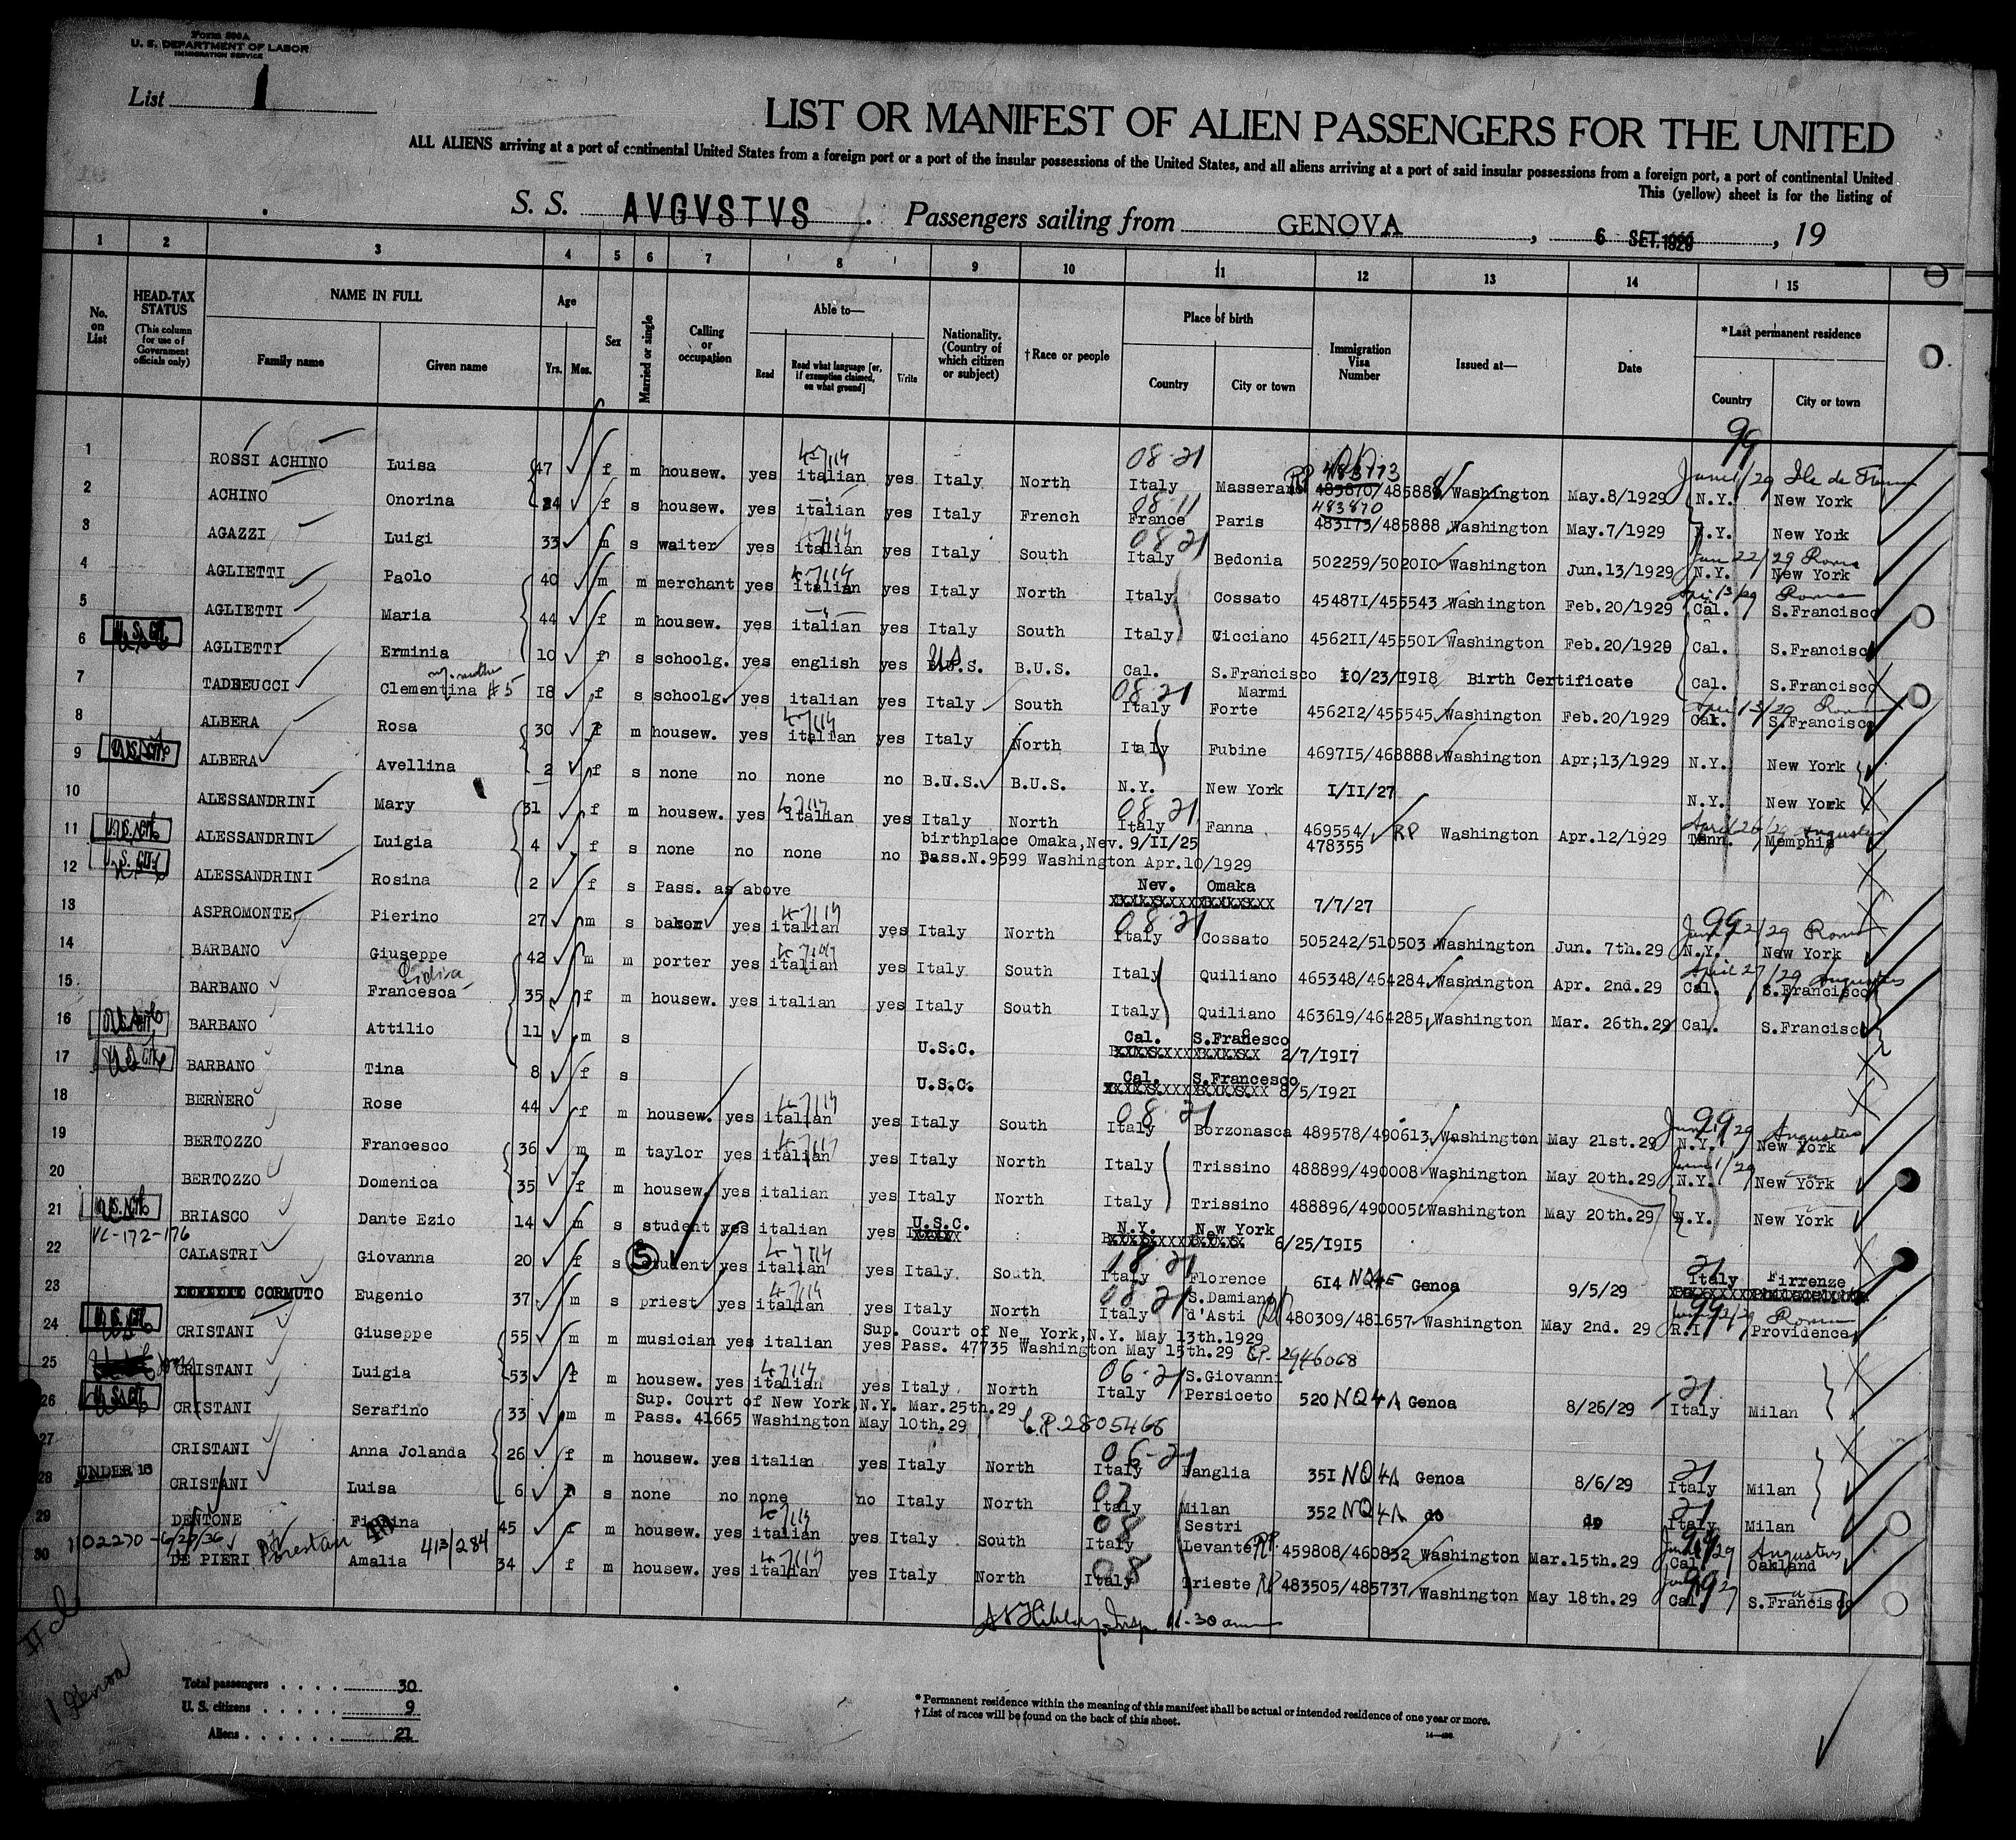 Form 500A
U. S. DEPARTMENT OF LABOR
IMMIGRATION SERVICE
List 1
LIST OR MANIFEST OF ALIEN PASSENGERS FOR THE UNITED
ALL ALIENS arriving at a port of continental United States from a foreign port or a port of the insular possessions of the United States, and all aliens arriving at a port of said insular possessions from a foreign port, a port of continental United
This (yellow) sheet is for the listing of
S. S. AVGVSTVS. Passengers sailing from GENOVA, 6 SET. 1929, 19
1 2 3 4 5 6 7 8 9 10 11 12 13 14 15
No. on List
HEAD-TAX STATUS (This column for use of Government officials only)
NAME IN FULL
Family name
Given name
Age
Yrs. Mos.
Sex
Married or single
Calling or occupation
Able to—
Read
Read what language [or, if exemption claimed, on what ground]
Write
Nationality. (Country of which citizen or subject)
†Race or people
Place of birth
Country
City or town
Immigration Visa Number
Issued at—
Date
*Last permanent residence
Country
City or town
99
June 1/29 Ile de France
1 ROSSI ACHINO Luisa 47 f m housew. yes italian yes Italy North Italy Masserano 483173 483870/485889 Washington May.8/1929 N.Y. New York
2 ACHINO Onorina 24 f s housew. yes italian yes Italy French France Paris 483870 483173/485888 Washington May.7/1929 N.Y. New York
3 AGAZZI Luigi 33 m s waiter yes italian yes Italy South Italy Bedonia 502259/502010 Washington Jun.13/1929 N.Y. New York
4 AGLIETTI Paolo 40 m m merchant yes italian yes Italy North Italy Cossato 454871/455543 Washington Feb.20/1929 Cal. S.Francisco
5 AGLIETTI Maria 44 f m housew. yes italian yes Italy South Italy Cicciano 456211/455501 Washington Feb.20/1929 Cal. S.Francisco
6 U. S. CIT. AGLIETTI Erminia 10 f s schoolg. yes english yes B.U.S. B.U.S. Cal. S.Francisco 10/23/1918 Birth Certificate Cal. S.Francisco
7 TADDEUCCI Clementina #5 18 f s schoolg. yes italian yes Italy South Italy Marmi Forte 456212/455545 Washington Feb.20/1929 Cal. S.Francisco
8 ALBERA Rosa 30 f m housew. yes italian yes Italy North Italy Fubine 469715/468888 Washington Apr;13/1929 N.Y. New York
9 U. S. CIT. ALBERA Avellina 2 f s none no none no B.U.S. B.U.S. N.Y. New York 1/11/27 N.Y. New York
10 ALESSANDRINI Mary 31 f m housew. yes italian yes Italy North Italy Fanna 469554/478355 RP Washington Apr.12/1929 Tenn. Memphis
11 U. S. CIT. ALESSANDRINI Luigia 4 f s none no none no birthplace Omaka,Nev. 9/11/25
Pass.N.9599 Washington Apr.10/1929
12 U. S. CIT. ALESSANDRINI Rosina 2 f s Pass. as above Nev. Omaka 7/7/27
13 ASPROMONTE Pierino 27 m s baker yes italian yes Italy North Italy Cossato 505242/510503 Washington Jun. 7th.29 N.Y. New York
14 BARBANO Giuseppe 42 m m porter yes italian yes Italy South Italy Quiliano 465348/464284 Washington Apr. 2nd.29 Cal. S.Francisco
15 BARBANO Francesca 35 f m housew. yes italian yes Italy South Italy Quiliano 463619/464285 Washington Mar. 26th.29 Cal. S.Francisco
16 U. S. CIT. BARBANO Attilio 11 m s U.S.C. Cal. S.Francesco 2/7/1917
17 U. S. CIT. BARBANO Tina 8 f s U.S.C. Cal. S.Francesco 8/5/1921
18 BERNERO Rose 44 f m housew. yes italian yes Italy South Italy Borzonasca 489578/490613 Washington May 21st.29 N.Y. New York
19 BERTOZZO Francesco 36 m m taylor yes italian yes Italy North Italy Trissino 488899/490008 Washington May 20th.29 N.Y. New York
20 BERTOZZO Domenica 35 f m housew. yes italian yes Italy North Italy Trissino 488896/490005 Washington May 20th.29 N.Y. New York
21 U. S. CIT. BRIASCO Dante Ezio 14 m s student yes italian yes U.S.C. N.Y. New York 6/25/1915
VC-172-176
22 CALASTRI Giovanna 20 f s student yes italian yes Italy South Italy Florence 614 NQ4E Genoa 9/5/29 Italy Firrenze
23 CORMUTO Eugenio 37 m s priest yes italian yes Italy North Italy S.Damiano d'Asti RP 480309/481657 Washington May 2nd. 29 R.I. Providence
24 U. S. CIT. CRISTANI Giuseppe 55 m m musician yes italian yes Sup. Court of New York,N.Y. May 13th.1929
Pass. 47735 Washington May 15th.29 CP. 2946068
25 CRISTANI Luigia 53 f m housew. yes italian yes Italy North Italy S.Giovanni Persiceto 520 NQ4A Genoa 8/26/29 Italy Milan
26 U. S. CIT. CRISTANI Serafino 33 m m Sup. Court of New York,N.Y. Mar.25th.29
Pass. 41665 Washington May 10th.29 C.P. 2805466
27 CRISTANI Anna Jolanda 26 f m housew. yes italian yes Italy North Italy Fanglia 351 NQ4A Genoa 8/6/29 Italy Milan
28 UNDER 16 CRISTANI Luisa 6 f s none no none no Italy North Italy Milan 352 NQ4A do do Italy Milan
29 DENTONE 45 f m housew. yes italian yes Italy South Italy Sestri Levante RP 459808/460832 Washington Mar.15th.29 Cal. Oakland
1102270-6/27/36
30 DE PIERI Amalia 413/284 34 f m housew. yes italian yes Italy North Italy Trieste RP 483505/485737 Washington May 18th.29 Cal. S.Francisco
11-30 am
1 Genoa
Total passengers . . . . 30
U. S. citizens . . . . . 9
Aliens . . . . . . 21
* Permanent residence within the meaning of this manifest shall be actual or intended residence of one year or more.
† List of races will be found on the back of this sheet.